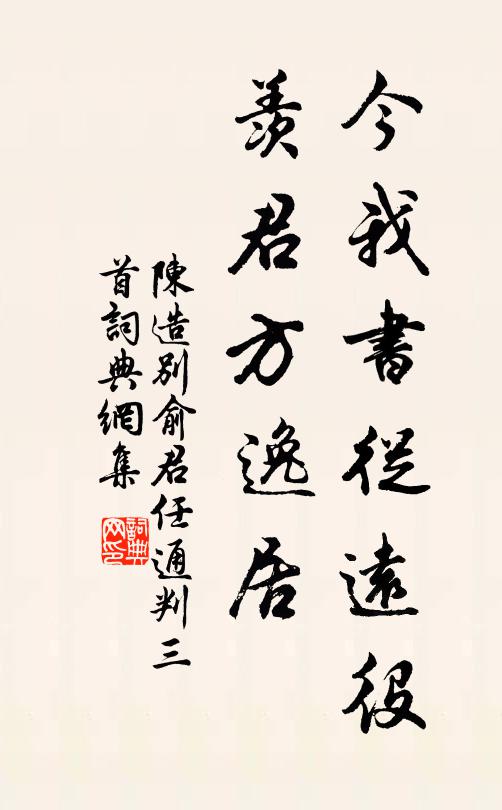 今我書從遠役
羨君方逸居
陳造別俞君任通判三
首詞典網集
詞典網印